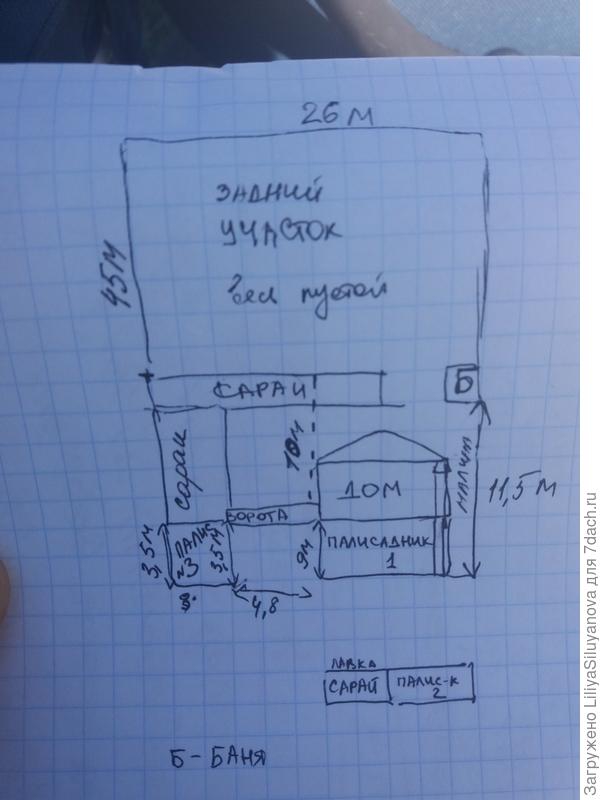 26 м
ЗАДНИЙ
УЧАСТОК
весь пустой
45 м
САРАЙ
Б
сараи
10 м
ДОМ
малин
11,5 м
ВОРОТА
3,5 м
ПАЛИС
3
3,5 м
9м
ПАЛИСАДНИК
1
4,8
ЛАВКА
САРАЙ
ПАЛИС-К
2
Б - БАНЯ
Загружено LiliyaSiluyanova для 7dach.ru